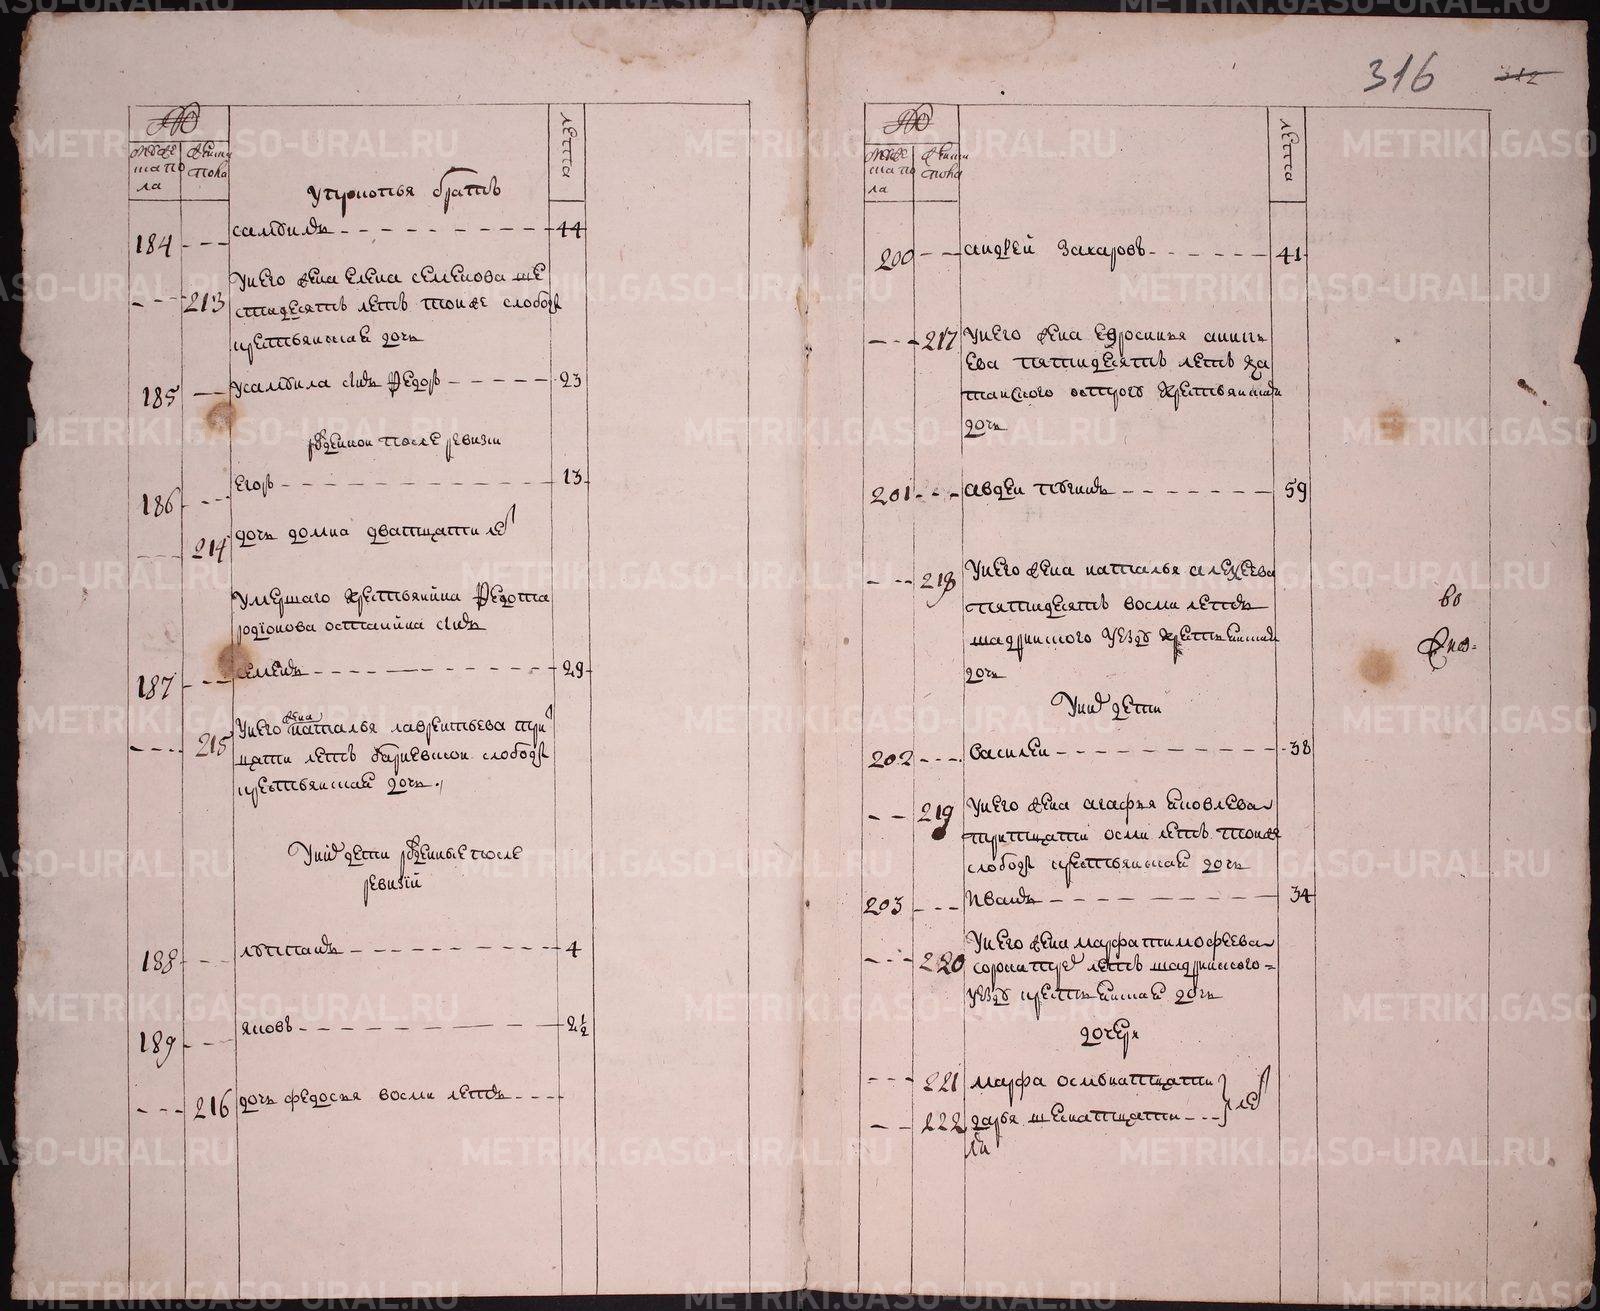 316
312
№
мужеска пола
женска пола
лета
у прокопья братъ
184 самоилъ 44
213 у него жена елена семенова ше
стидесятъ летъ тойже слободы
крестьянская дочь
185 у самоила сынъ Федоръ 23
рожденной после ревизи
186 Егоръ 13
214 дочь домна дватцати ле
умершаго крестьянина Федота
родионова остался сынъ
187 семенъ 29
215 у него жена наталья лаврентьева три
цати летъ барневской слободы
крестьянская дочь
у них дети рожденные после
ревизий
188 4
189 яковъ 2½
216 дочь федосья восми летъ
№
мужеска пола
женска пола
лета
200 андрей захаровъ 41
217 у него жена Ефросинья
ева пятидесятъ летъ ка
тайского острогу крестьянская
дочь
201 авдей 59
218 у него жена наталья алексеева
пятидесятъ восми летъ
шадринского уезду крестьянская
дочь
у них дети
202 василей 38
219 у него жена агафья яковлева
тритцати осми летъ тойже
слободы крестьянская дочь
203 Иванъ 34
220 у него жена марфа тимофеева
сорока трех летъ шадринского
уезду крестьянская дочь
дочери
221 марфа осмнатцати
222 дарья шеснатцати
ле
во